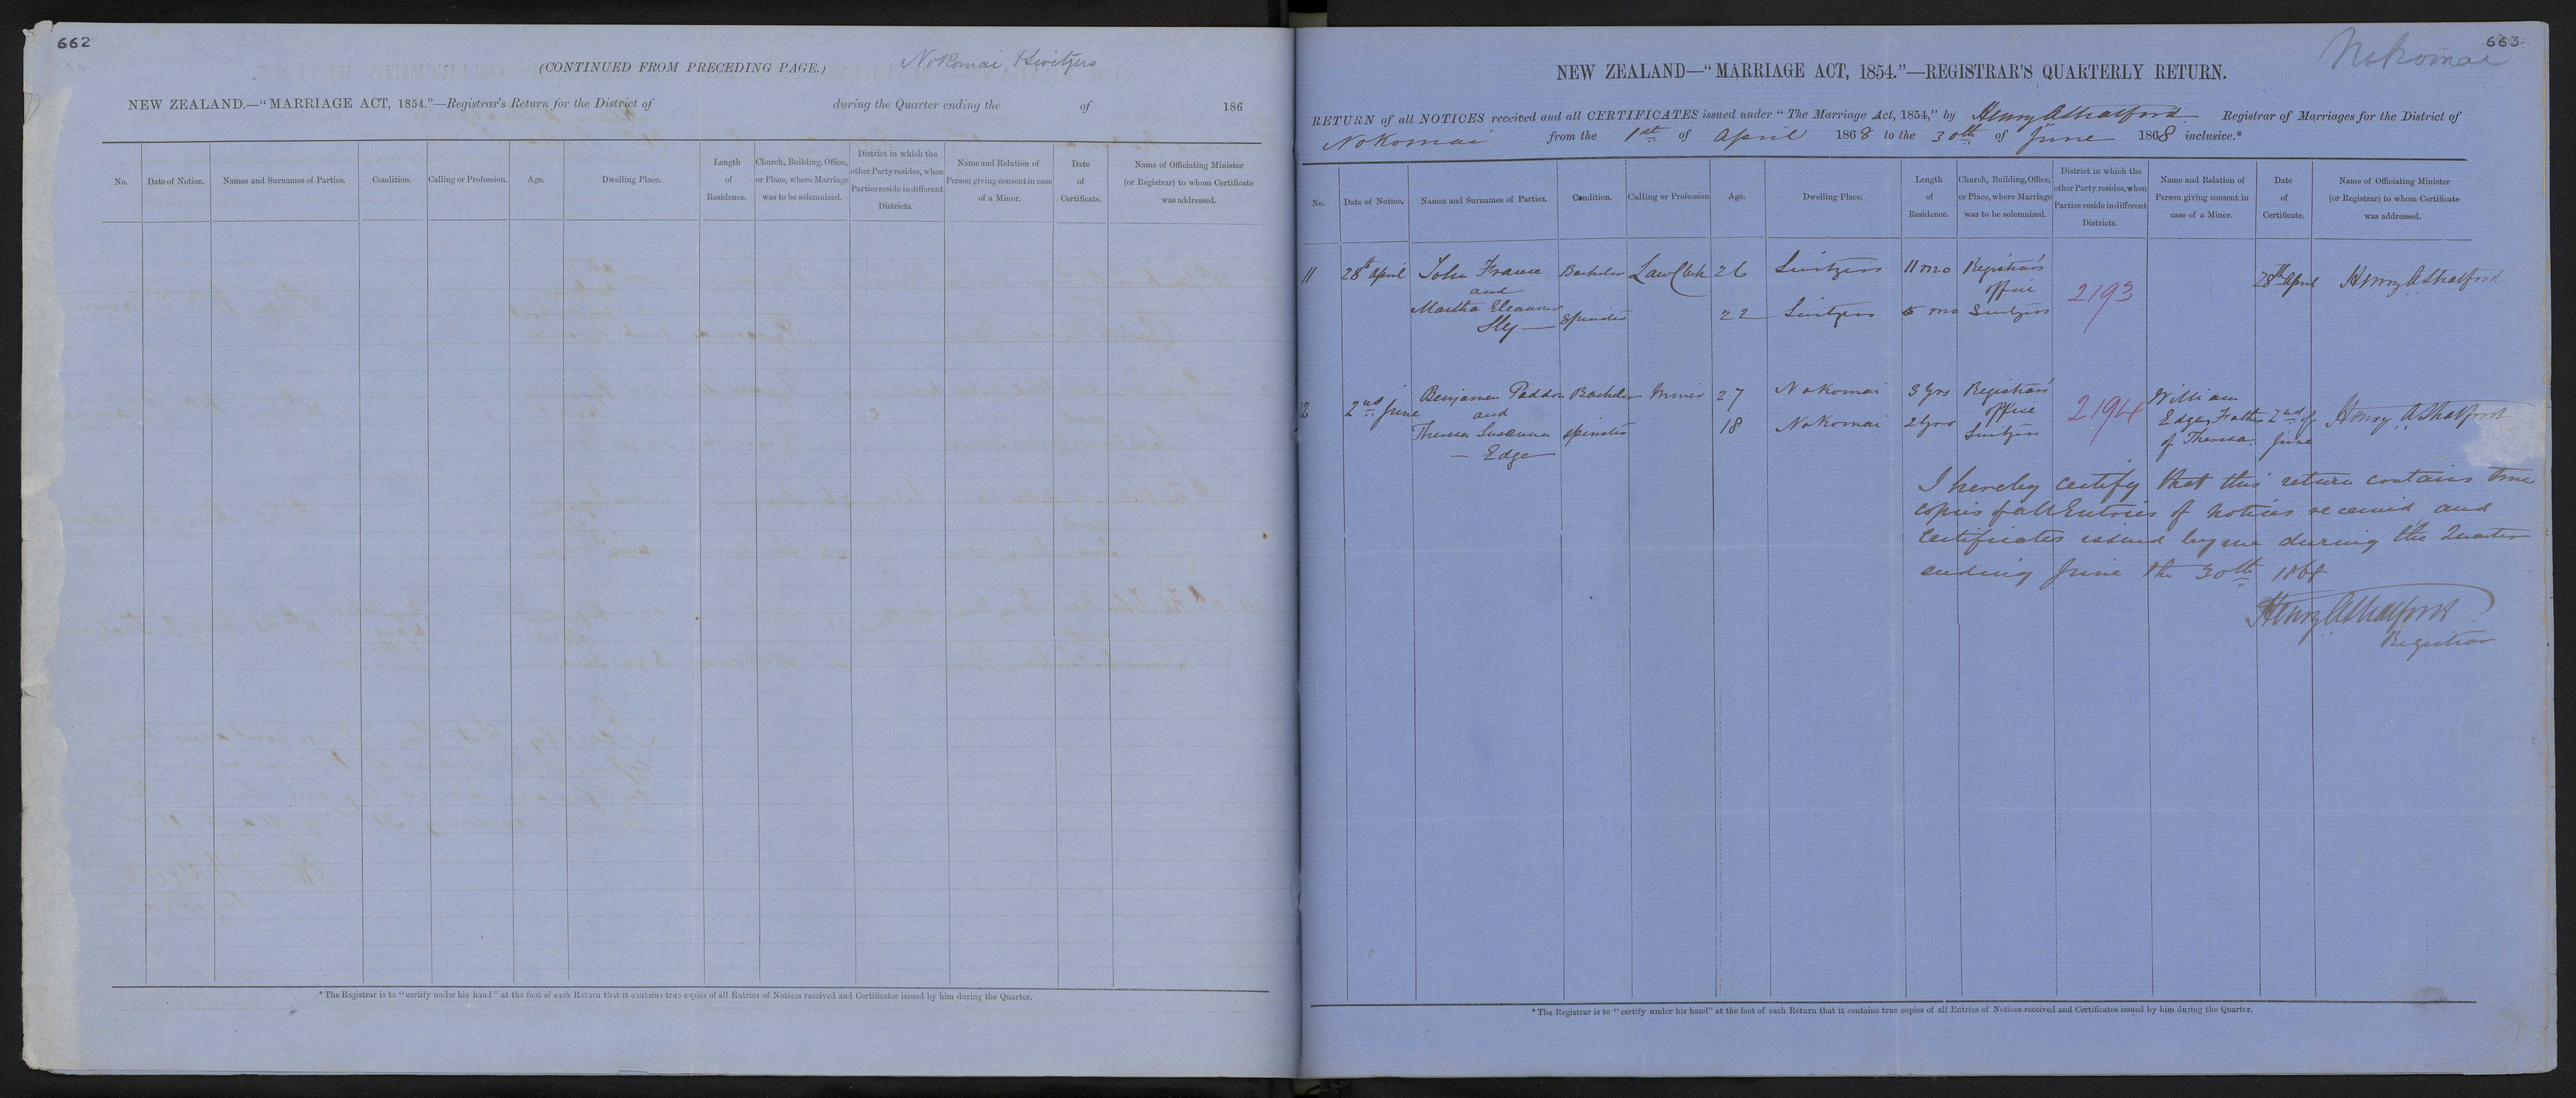 662
(CONTINUED FROM PRECEDING PAGE.)
Nokomai & Switzers
NEW ZEALAND.—"MARRIAGE ACT, 1854."—Registrar's Return for the District of during the Quarter ending the of 186
No.
Date of Notice.
Names and Surnames of Parties.
Condition.
Calling or Profession.
Age.
Dwelling Place.
Length
of
Residence.
Church, Building, Office,
or Place, where Marriage
was to be solemnized.
District in which the
other Party resides, when
Parties reside in different
Districts.
Name and Relation of
Person giving consent in case
of a Minor.
Date
of
Certificate.
Name of Officiating Minister
(or Registrar) to whom Certificate
was addressed.
*The Registrar is to "certify under his hand" at the foot of each Return that it contains true copies of all Entries of Notices received and Certificates issued by him during the Quarter.
663
Nokomai
NEW ZEALAND—"MARRIAGE ACT, 1854."—REGISTRAR'S QUARTERLY RETURN.
RETURN of all NOTICES received and all CERTIFICATES issued under "The Marriage Act, 1854," by Henry A Stratford Registrar of Marriages for the District of
Nokomai from the 1st of April 1868 to the 30th of June 1868 inclusive.*
No.
Date of Notice.
Names and Surnames of Parties.
Condition.
Calling or Profession
Age.
Dwelling Place.
Length
of
Residence.
Church, Building, Office,
or Place, where Marriage
was to be solemnized.
District in which the
other Party resides, when
Parties reside in different
Districts.
Name and Relation of
Person giving consent in
case of a Minor.
Date
of
Certificate.
Name of Officiating Minister
(or Registrar) to whom Certificate
was addressed.
11 28th April John Frame Bachelor Law Clerk 26 Switzers 11 mo Registrar's 28th April Henry A Stratford
and office 2193
Martha Eleanor Spinster 22 Switzers 5 mo Switzers
Sly
12 2nd June Benjamin Paddon Bachelor Miner 27 Nokomai 3 yrs Registrar's 2194 William
and office Edge, Father 2nd of Henry A Stratford
Theresa Susanna Spinster 18 Nokomai 2 yrs Switzers of Theresa. June
Edge
I hereby certify that this return contains true
copies of all Entries of notices received and
Certificates issued by me during the Quarter
ending June the 30th 1868
Henry A Stratford
Registrar
*The Registrar is to "certify under his hand" at the foot of each Return that it contains true copies of all Entries of Notices received and Certificates issued by him during the Quarter.